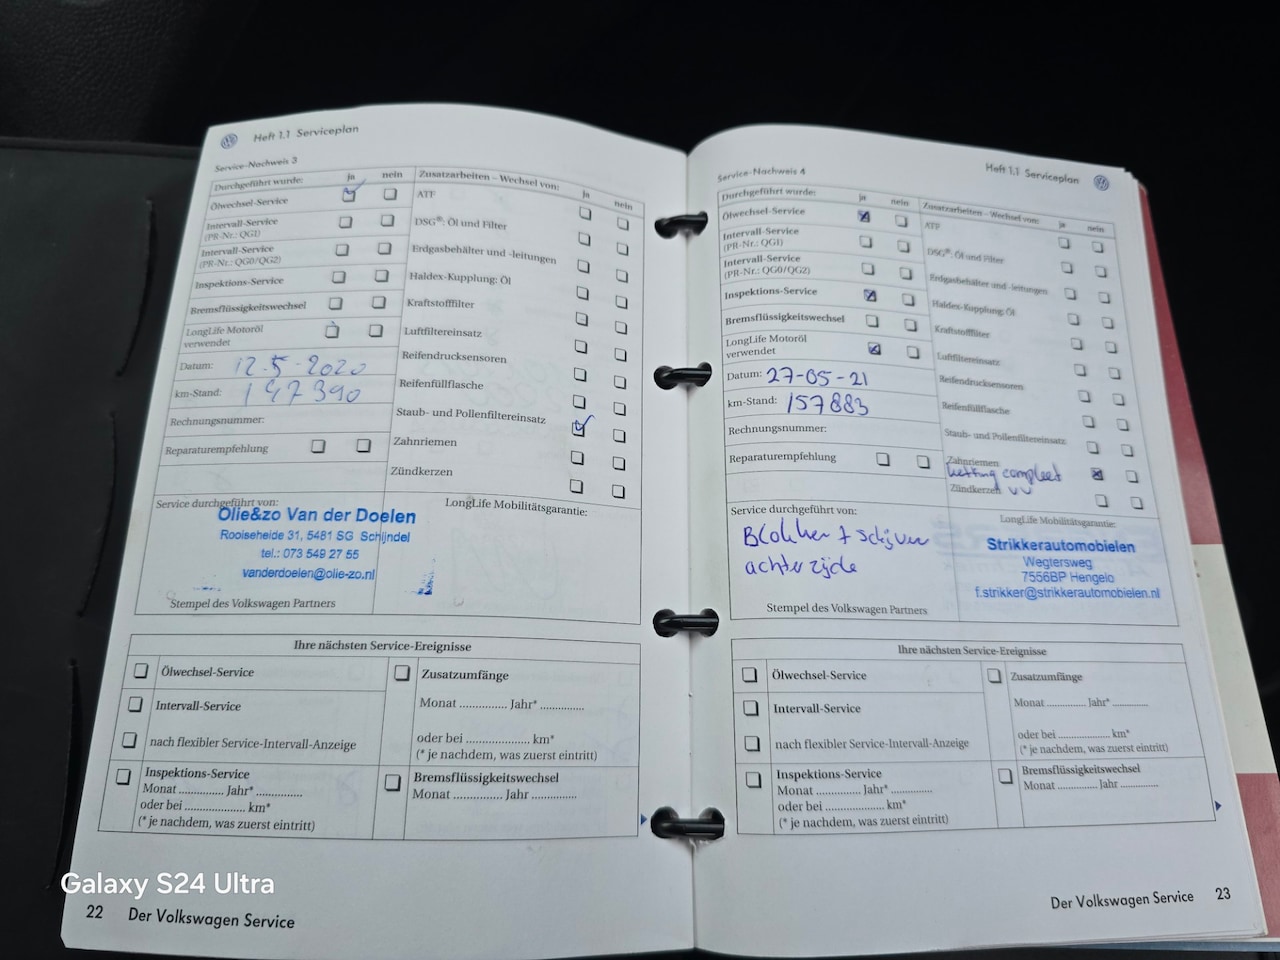 Heft 1.1 Serviceplan
Service-Nachweis 3
Durchgeführt wurde: ja nein
Ölwechsel-Service
Intervall-Service
(PR-Nr.: QG1)
Intervall-Service
(PR-Nr.: QG0/QG2)
Inspektions-Service
Bremsflüssigkeitswechsel
LongLife Motoröl
verwendet
Datum: 12-5-2020
km-Stand: 147390
Rechnungsnummer:
Reparaturempfehlung
Zusatzarbeiten – Wechsel von: ja nein
ATF
DSG®: Öl und Filter
Erdgasbehälter und -leitungen
Haldex-Kupplung: Öl
Kraftstofffilter
Luftfiltereinsatz
Reifendrucksensoren
Reifenfüllflasche
Staub- und Pollenfiltereinsatz
Zahnriemen
Zündkerzen
Service durchgeführt von:
Olie&zo Van der Doelen
Rooiseheide 31, 5481 SG Schijndel
tel.: 073 549 27 55
vanderdoelen@olie-zo.nl
Stempel des Volkswagen Partners
LongLife Mobilitätsgarantie:
Ihre nächsten Service-Ereignisse
Ölwechsel-Service
Intervall-Service
nach flexibler Service-Intervall-Anzeige
Inspektions-Service
Monat ............. Jahr* .............
oder bei ...................... km*
(* je nachdem, was zuerst eintritt)
Zusatzumfänge
Monat .............. Jahr* .............
oder bei ...................... km*
(* je nachdem, was zuerst eintritt)
Bremsflüssigkeitswechsel
Monat .............. Jahr .............
22 Der Volkswagen Service
Heft 1.1 Serviceplan
Service-Nachweis 4
Durchgeführt wurde: ja nein
Ölwechsel-Service
Intervall-Service
(PR-Nr.: QG1)
Intervall-Service
(PR-Nr.: QG0/QG2)
Inspektions-Service
Bremsflüssigkeitswechsel
LongLife Motoröl
verwendet
Datum: 27-05-21
km-Stand: 157883
Rechnungsnummer:
Reparaturempfehlung
Zusatzarbeiten – Wechsel von: ja nein
ATF
DSG®: Öl und Filter
Erdgasbehälter und -leitungen
Haldex-Kupplung: Öl
Kraftstofffilter
Luftfiltereinsatz
Reifendrucksensoren
Reifenfüllflasche
Staub- und Pollenfiltereinsatz
Zahnriemen
compleet
Zündkerzen
Service durchgeführt von:
Blokken + schijven
achterzijde
Stempel des Volkswagen Partners
LongLife Mobilitätsgarantie:
Strikkerautomobielen
Wegtersweg
7556BP Hengelo
f.strikker@strikkerautomobielen.nl
Ihre nächsten Service-Ereignisse
Ölwechsel-Service
Intervall-Service
nach flexibler Service-Intervall-Anzeige
Inspektions-Service
Monat ............. Jahr* .............
oder bei ...................... km*
(* je nachdem, was zuerst eintritt)
Zusatzumfänge
Monat .............. Jahr* .............
oder bei ...................... km*
(* je nachdem, was zuerst eintritt)
Bremsflüssigkeitswechsel
Monat .............. Jahr .............
Der Volkswagen Service 23
Galaxy S24 Ultra